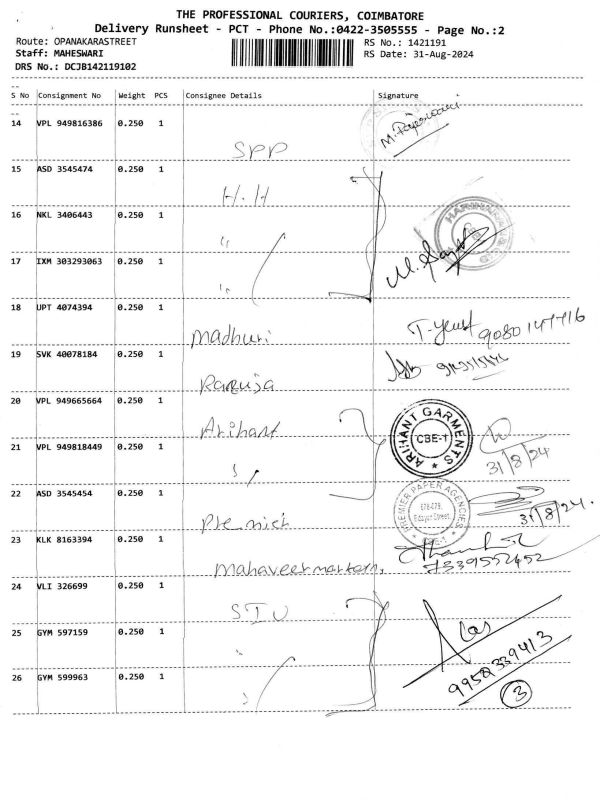 THE PROFESSIONAL COURIERS, COIMBATORE
Delivery Runsheet - PCT - Phone No.:0422-3505555 - Page No.:2
Route: OPANAKARASTREET
RS No.: 1421191
Staff: MAHESWARI
RS Date: 31-Aug-2024
DRS No.: DCJB142119102
--
S No Consignment No Weight PCS Consignee Details Signature
--
14 VPL 949816386 0.250 1
SPP
15 ASD 3545474 0.250 1
H.H
16 NKL 3406443 0.250 1
"
17 IXM 303293063 0.250 1
"
18 UPT 4074394 0.250 1
Madhuri
9080147716
19 SVK 40078184 0.250 1
20 VPL 949665664 0.250 1
Arihant
ARIHANT GARMENTS
CBE-1
31/8/24
21 VPL 949818449 0.250 1
"
22 ASD 3545454 0.250 1
Premier
PREMIER PAPER AGENCIES
31/8/24.
23 KLK 8163394 0.250 1
7339552452
24 VLI 326699 0.250 1
25 GYM 597159 0.250 1
"
9958339413
26 GYM 599963 0.250 1
3